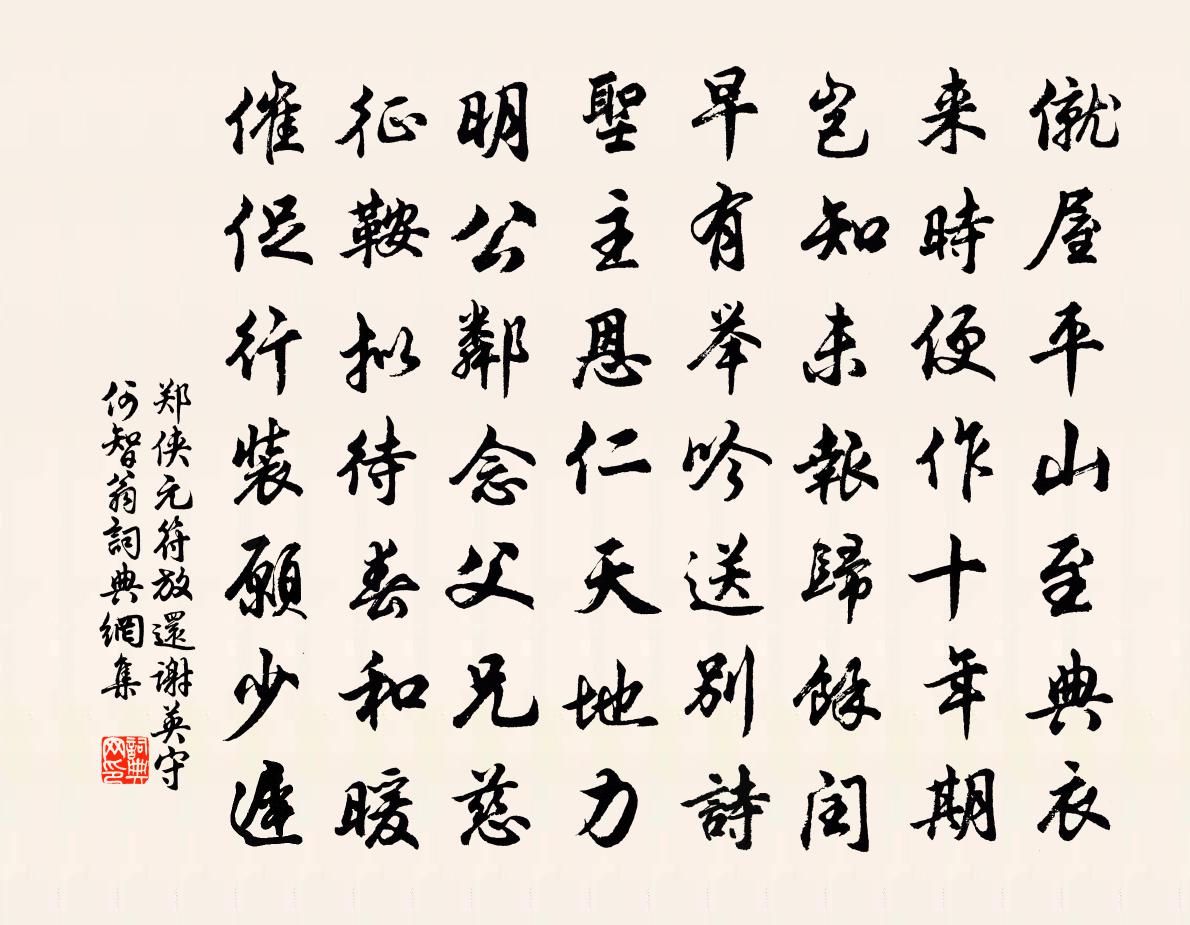 僦屋平山至典衣
来時便作十年期
豈知未報歸餘閏
早有举吟送别詩
聖主恩仁天地力
明公鄰念父兄慈
征鞍拟待春和暖
催促行裝願少遲
郑侠元符放還谢英守
何智翁詞典網集
詞典网印